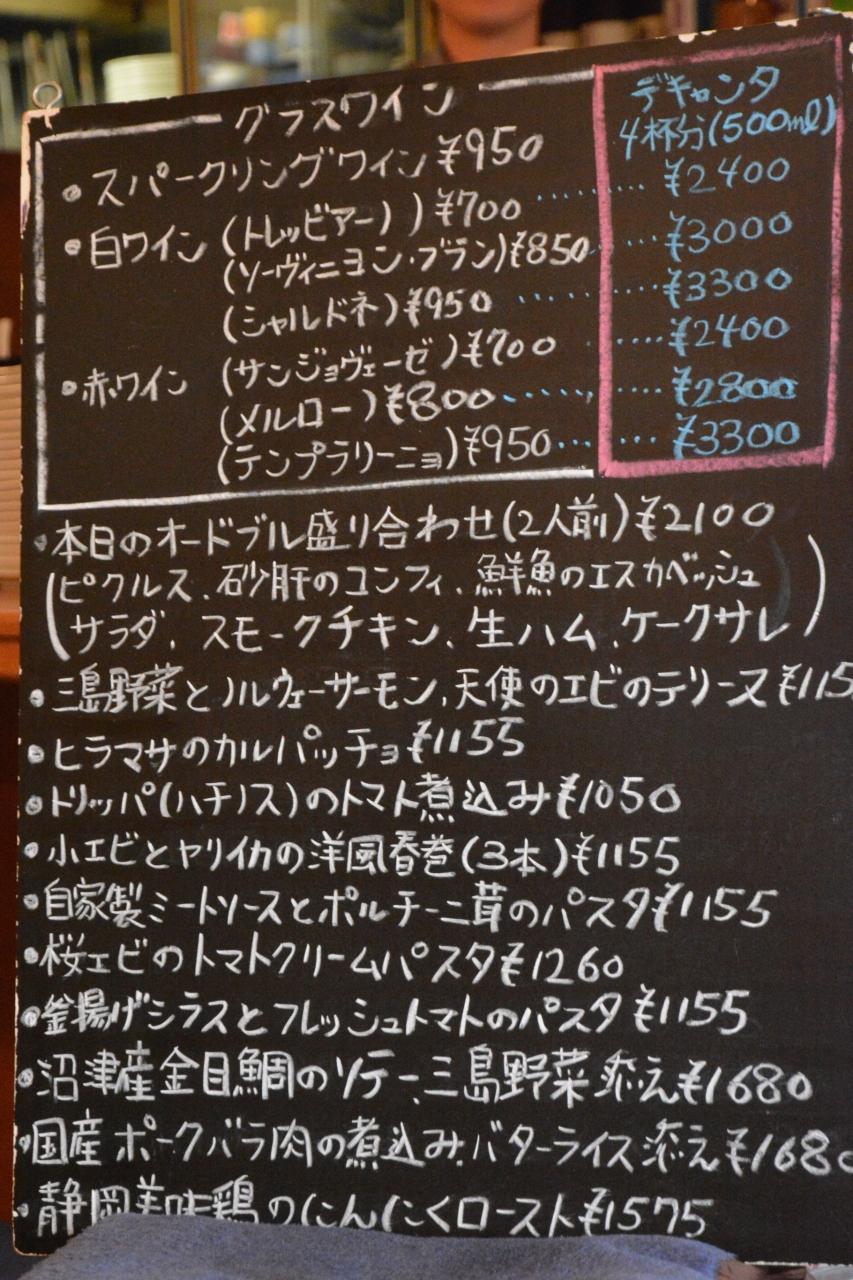 グラスワイン
デキャンタ
4杯分(500ml)
・スパークリングワイン ¥950
・白ワイン (トレッビアーノ) ¥700 ........ ¥2400
(ソーヴィニヨン・ブラン) ¥850 ..... ¥3000
(シャルドネ) ¥950 ........... ¥3300
・赤ワイン (サンジョヴェーゼ) ¥700 ..... ¥2400
(メルロー) ¥800 ........... ¥2800
(テンプラリーニョ) ¥950 ........ ¥3300
・本日のオードブル盛り合わせ(2人前) ¥2100
(ピクルス、砂肝のコンフィ、鮮魚のエスカベッシュ
サラダ、スモークチキン、生ハム、ケークサレ)
・三島野菜とノルウェーサーモン、天使のエビのテリーヌ ¥115
・ヒラマサのカルパッチョ ¥1155
・トリッパ(ハチノス)のトマト煮込み ¥1050
・小エビとヤリイカの洋風春巻(3本) ¥1155
・自家製ミートソースとポルチーニ茸のパスタ ¥1155
・桜エビのトマトクリームパスタ ¥1260
・釜揚げシラスとフレッシュトマトのパスタ ¥1155
・沼津産金目鯛のソテー、三島野菜添え ¥1680
・国産ポークバラ肉の煮込み、バターライス添え ¥1680
・静岡美味鶏のにんにくロースト ¥1575